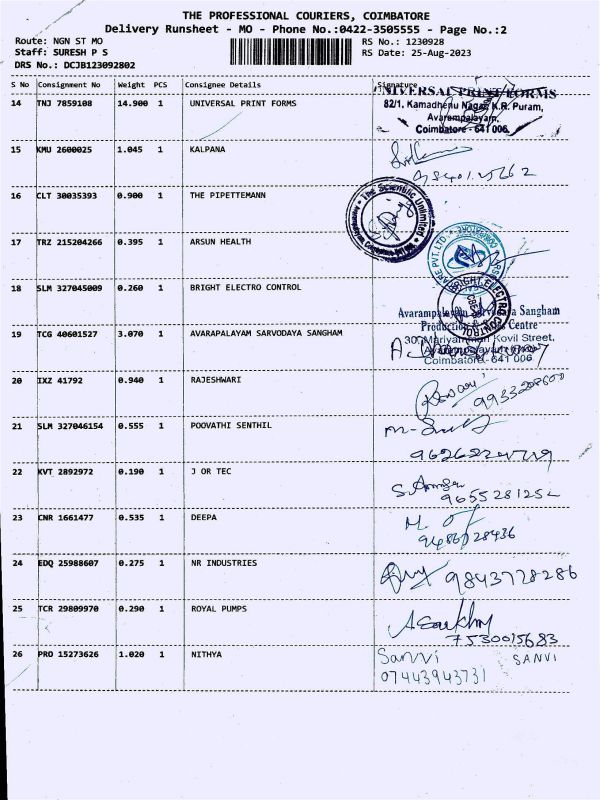 THE PROFESSIONAL COURIERS, COIMBATORE
Delivery Runsheet - MO - Phone No.:0422-3505555 - Page No.:2
Route: NGN ST MO RS No.: 1230928
Staff: SURESH P S RS Date: 25-Aug-2023
DRS No.: DCJB123092802
S No Consignment No Weight PCS Consignee Details Signature
14 TNJ 7859108 14.900 1 UNIVERSAL PRINT FORMS
UNIVERSAL PRINT FORMS
82/1, Kamadhenu Nagar, K.R. Puram,
Avarampalayam,
Coimbatore - 641 006
15 KMU 2600025 1.045 1 KALPANA
16 CLT 30035393 0.900 1 THE PIPETTEMANN
The Scientific Unlimited
17 TRZ 215204266 0.395 1 ARSUN HEALTH
18 SLM 327045009 0.260 1 BRIGHT ELECTRO CONTROL
BRIGHT ELECTRO CONTROL
19 TCG 40601527 3.070 1 AVARAPALAYAM SARVODAYA SANGHAM
Avarampalayam Sarvodaya Sangham
Production Centre
30, Mariyamman Kovil Street,
Avarampalayam
Coimbatore - 641 006
20 IXZ 41792 0.940 1 RAJESHWARI
21 SLM 327046154 0.555 1 POOVATHI SENTHIL
22 KVT 2892972 0.190 1 J OR TEC
9655281252
23 CNR 1661477 0.535 1 DEEPA
9486028436
24 EDQ 25988607 0.275 1 NR INDUSTRIES
9843778286
25 TCR 29809970 0.290 1 ROYAL PUMPS
7530015683
26 PRO 15273626 1.020 1 NITHYA
Sanvi SANVI
07443943731